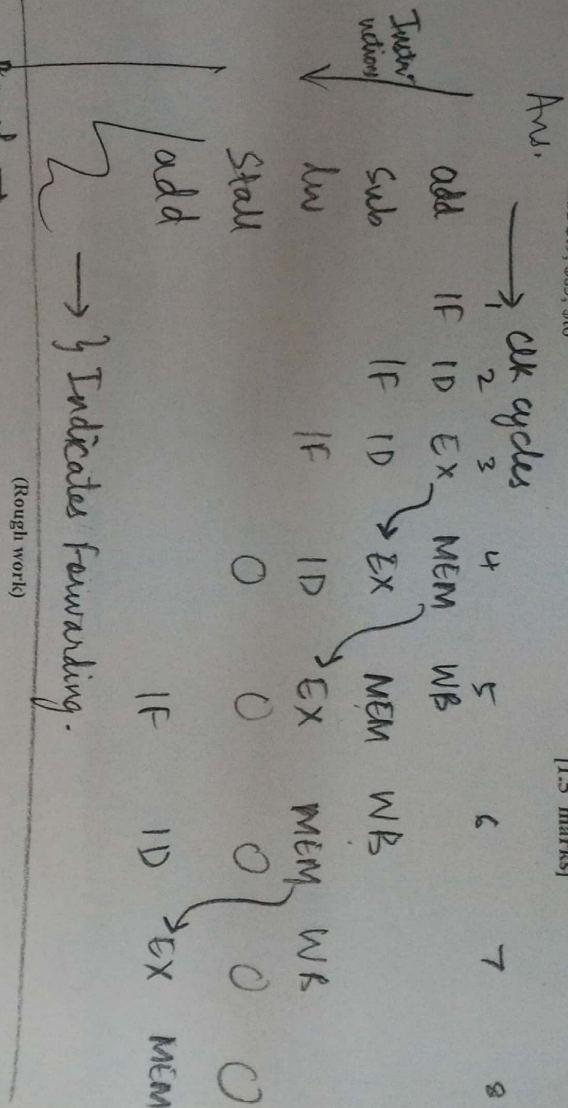 Ans.
→ Clk cycles
1 2 3 4 5 6 7 8
Instr
uctions
add IF ID EX MEM WB
Sub IF ID EX MEM WB
lw IF ID EX MEM WB
Stall O O O O O
add IF ID EX MEM
→ } Indicates Forwarding.
(Rough work)